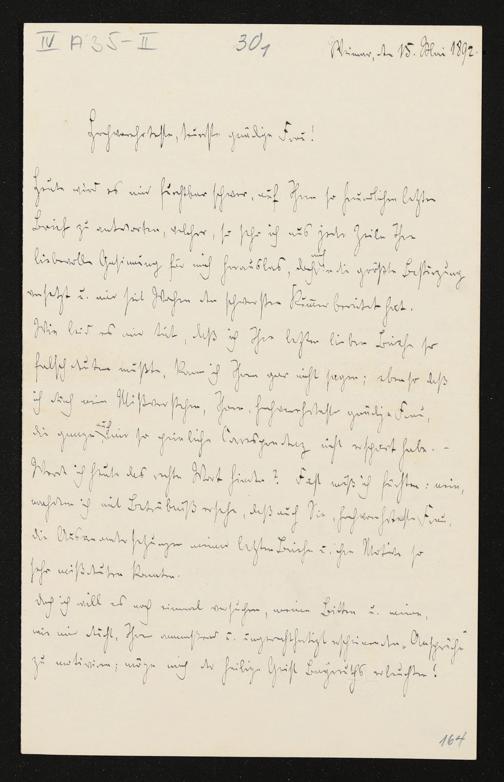 IV A 35-II 30/1
Weimar, den 15. Mai 1892.
Hochverehrteste, teuerste gnädige Frau!
Heute wird es mir furchtbar schwer, auf Ihren so freundlichen letzten
Brief zu antworten, welcher, so sehr ich aus jeder Zeile Ihre
liebevolle Gesinnung für mich herauslas, doch mich in die größte Bestürzung
versetzt u. mir seit Wochen den schwersten Kummer bereitet hat.
Wie leid es mir tut, daß ich Ihre letzten lieben Briefe so
falsch deuten mußte, kann ich Ihnen gar nicht sagen; ebenso daß
ich durch mein Mißverstehen, Ihnen, hochverehrteste gnädige Frau,
die ganze mir so peinliche Correspondenz nicht erspart habe. –
Werde ich heute das rechte Wort finden? Fast muß ich fürchten: nein,
nachdem ich mit Betrübniß ersehe, daß auch Sie, hochverehrteste Frau,
die Auseinandersetzungen meiner letzten Briefe u. ihre Motive so
sehr mißdeuten konnten.
Doch ich will es noch einmal versuchen, meine Bitten u. meine,
wie mir deucht, Ihnen anmaßend u. ungerechtfertigt erscheinenden „Ansprüche“
zu motiviren; möge mich der heilige Geist Bayreuths erleuchten!
164